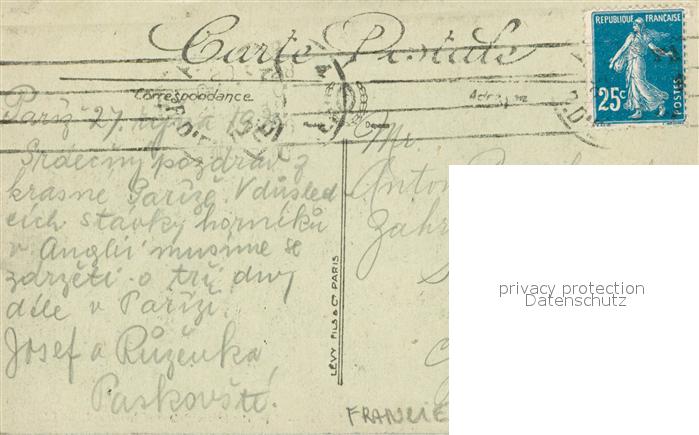 Carte Postale
REPUBLIQUE FRANÇAISE
25c
POSTES
Correspondance
Paříž 27. října 19
Srdečný pozdrav z
krásne Paříže. V důsled
cích stávky horníků
v Anglii musíme se
zdržeti o tři dny
déle v Paříži.
Josef a Růženka
Paskovští.
LÉVY FILS & Cie PARIS
Mr
Anton
Zahr
FRANCIE
privacy protection
Datenschutz